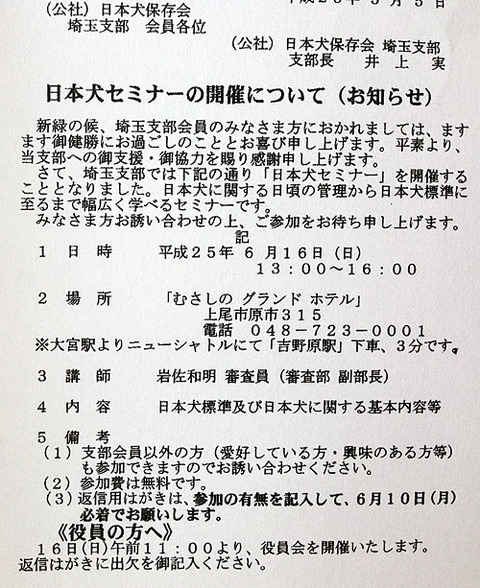 平成25年5月5日
(公社)日本犬保存会
埼玉支部 会員各位
(公社)日本犬保存会 埼玉支部
支部長 井上 実
日本犬セミナーの開催について(お知らせ)
新緑の候、埼玉支部会員のみなさま方におかれましては、ます
ます御健勝にお過ごしのこととお喜び申し上げます。平素より、
当支部への御支援・御協力を賜り感謝申し上げます。
さて、埼玉支部では下記の通り「日本犬セミナー」を開催する
こととなりました。日本犬に関する日頃の管理から日本犬標準に
至るまで幅広く学べるセミナーです。
みなさま方お誘い合わせの上、ご参加をお待ち申し上げます。
記
1 日 時 平成25年 6月16日(日)
13:00~16:00
2 場 所 「むさしの グランド ホテル」
上尾市原市315
電話 048-723-0001
※大宮駅よりニューシャトルにて「吉野原駅」下車、3分です。
3 講 師 岩佐和明 審査員(審査部 副部長)
4 内 容 日本犬標準及び日本犬に関する基本内容等
5 備 考
(1)支部会員以外の方(愛好している方・興味のある方等)
も参加できますのでお誘い合わせください。
(2)参加費は無料です。
(3)返信用はがきは、参加の有無を記入して、6月10日(月)
必着でお願いします。
《役員の方へ》
16日(日)午前11:00より、役員会を開催いたします。
返信はがきに出欠を御記入ください。